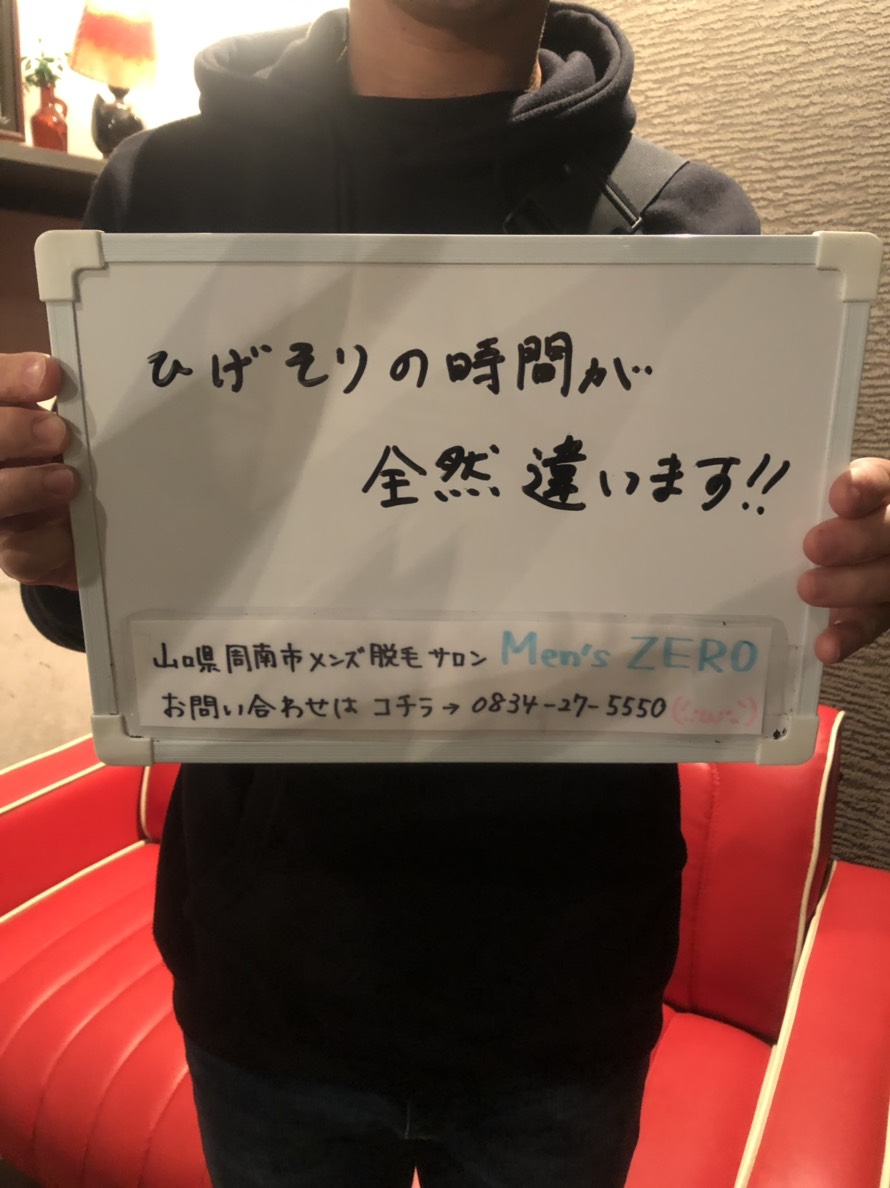 ひげそりの時間が
全然違います!!
山口県周南市メンズ脱毛サロン Men's ZERO
お問い合わせは コチラ→ 0834-27-5550